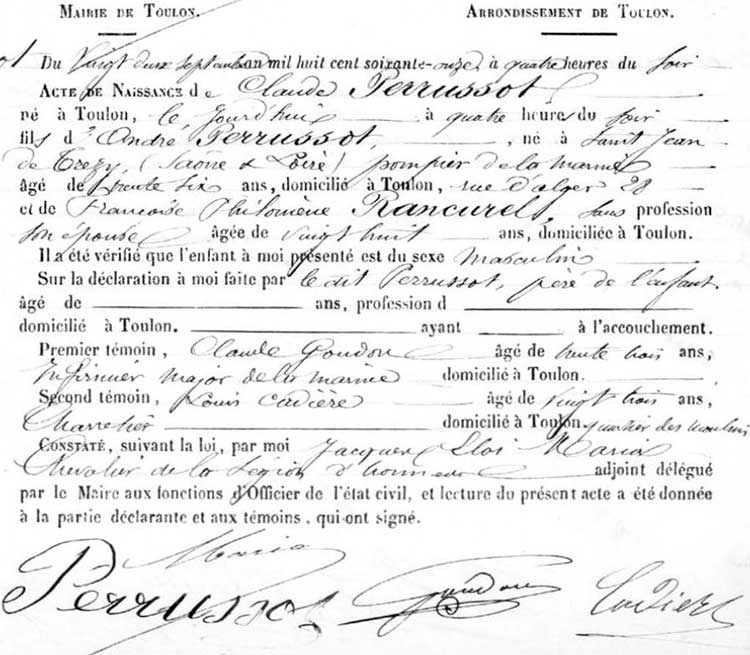 MAIRIE DE TOULON. ARRONDISSEMENT DE TOULON.
Du Vingt deux septembre an mil huit cent soixante-onze, à quatre heures du soir
ACTE DE NAISSANCE de Claude Perrussot
né à Toulon, le jourd'hui à quatre heures du soir
fils d' André Perrussot, , né à Saint Jean
de (Saone & Loire) pompier de la marine
âgé de trente six ans, domicilié à Toulon, rue d'alger 28
et de Francoise Philomène Rancurel, sans profession
son épouse âgée de vingt huit ans, domiciliée à Toulon.
Il a été vérifié que l'enfant à moi présenté est du sexe masculin
Sur la déclaration à moi faite par le dit Perrussot, père de l'enfant.
âgé de ans, profession d
domicilié à Toulon. ayant à l'accouchement.
Premier témoin, Claude Goudon âgé de trente trois ans,
infirmier major de la marine domicilié à Toulon.
Second témoin, Louis Cadière âgé de vingt trois ans,
Charretier domicilié à Toulon quartier des moulins
CONSTATÉ, suivant la loi, par moi Jacques Maria
Chevalier de la Légion d'honneur adjoint délégué
par le Maire aux fonctions d'Officier de l'état civil, et lecture du présent acte a été donnée
à la partie déclarante et aux témoins, qui ont signé.
Maria
Perrussot Goudon Cadière